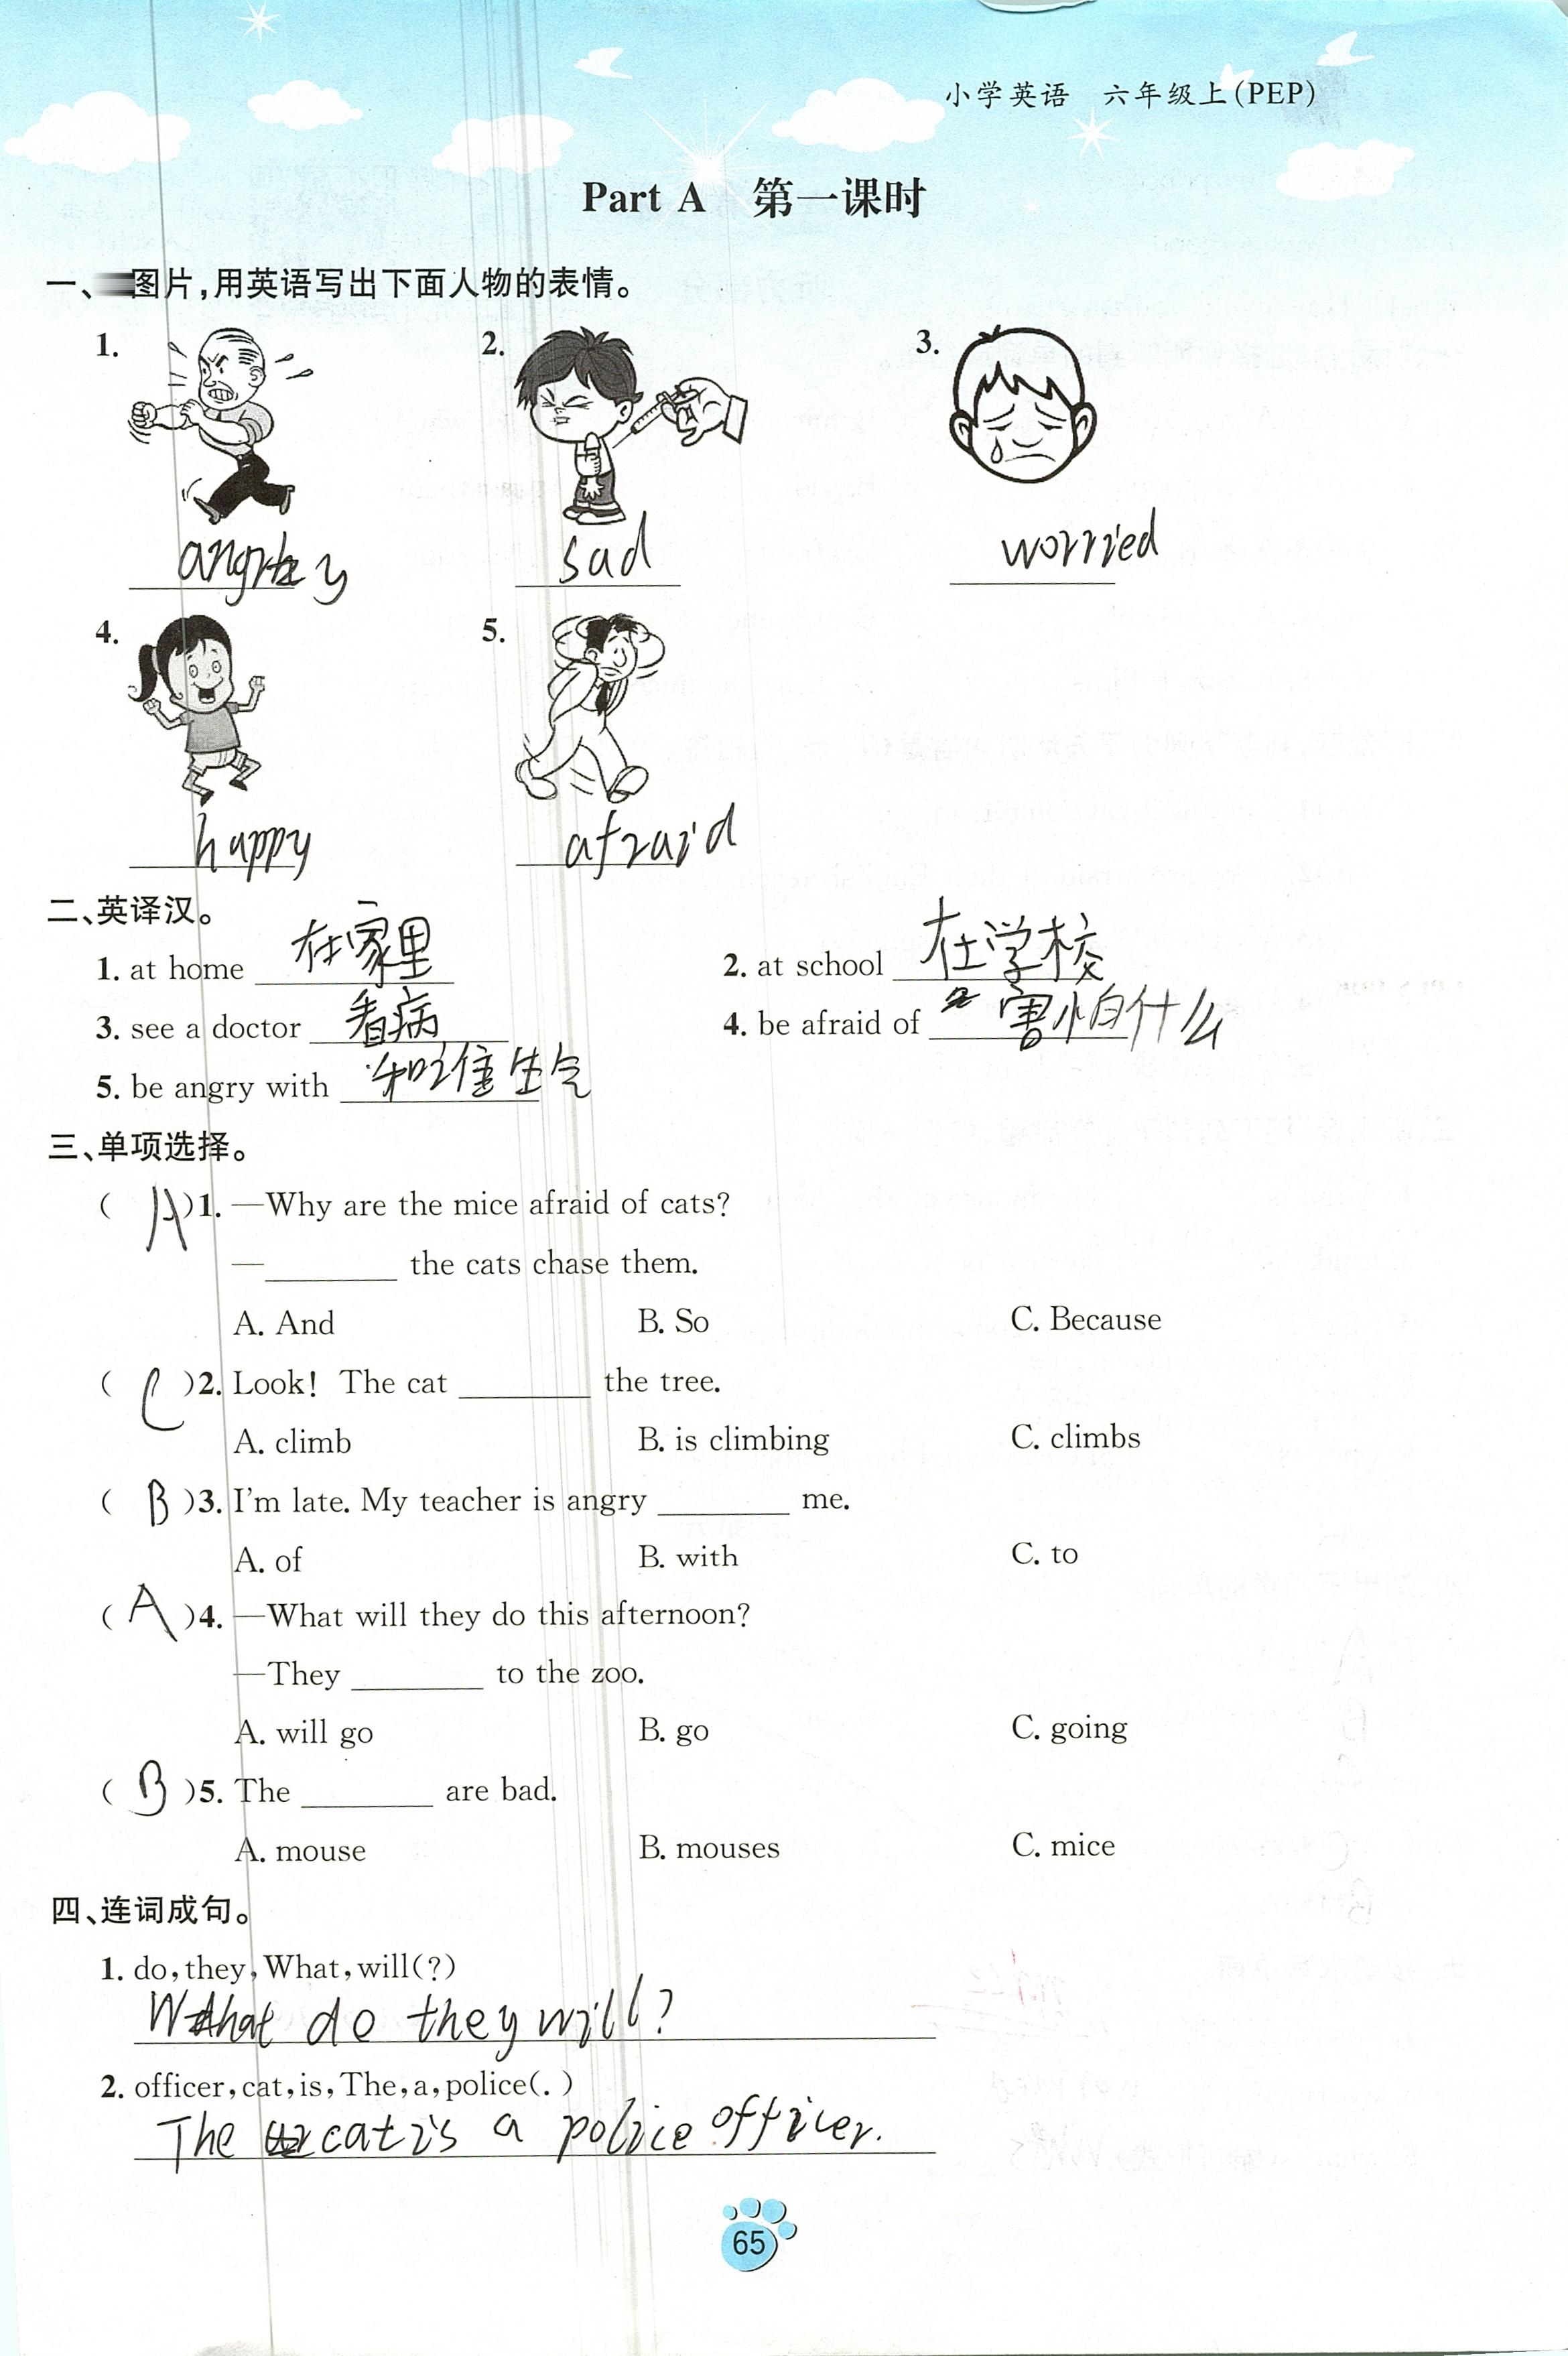 小学英语 六年级上(PEP)
Part A 第一课时
一、图片,用英语写出下面人物的表情。
1. 2. 3.
angry sad worried
4. 5.
happy afraid
二、英译汉。
1. at home 在家里 2. at school 在学校
3. see a doctor 看病 4. be afraid of 害怕什么
5. be angry with 和谁生气
三、单项选择。
( A )1. —Why are the mice afraid of cats?
—________ the cats chase them.
A. And B. So C. Because
( C )2. Look! The cat ________ the tree.
A. climb B. is climbing C. climbs
( B )3. I'm late. My teacher is angry ________ me.
A. of B. with C. to
( A )4. —What will they do this afternoon?
—They ________ to the zoo.
A. will go B. go C. going
( B )5. The ________ are bad.
A. mouse B. mouses C. mice
四、连词成句。
1. do,they,What,will(?)
What do they will?
2. officer,cat,is,The,a,police(.)
The cat is a police officer.
65